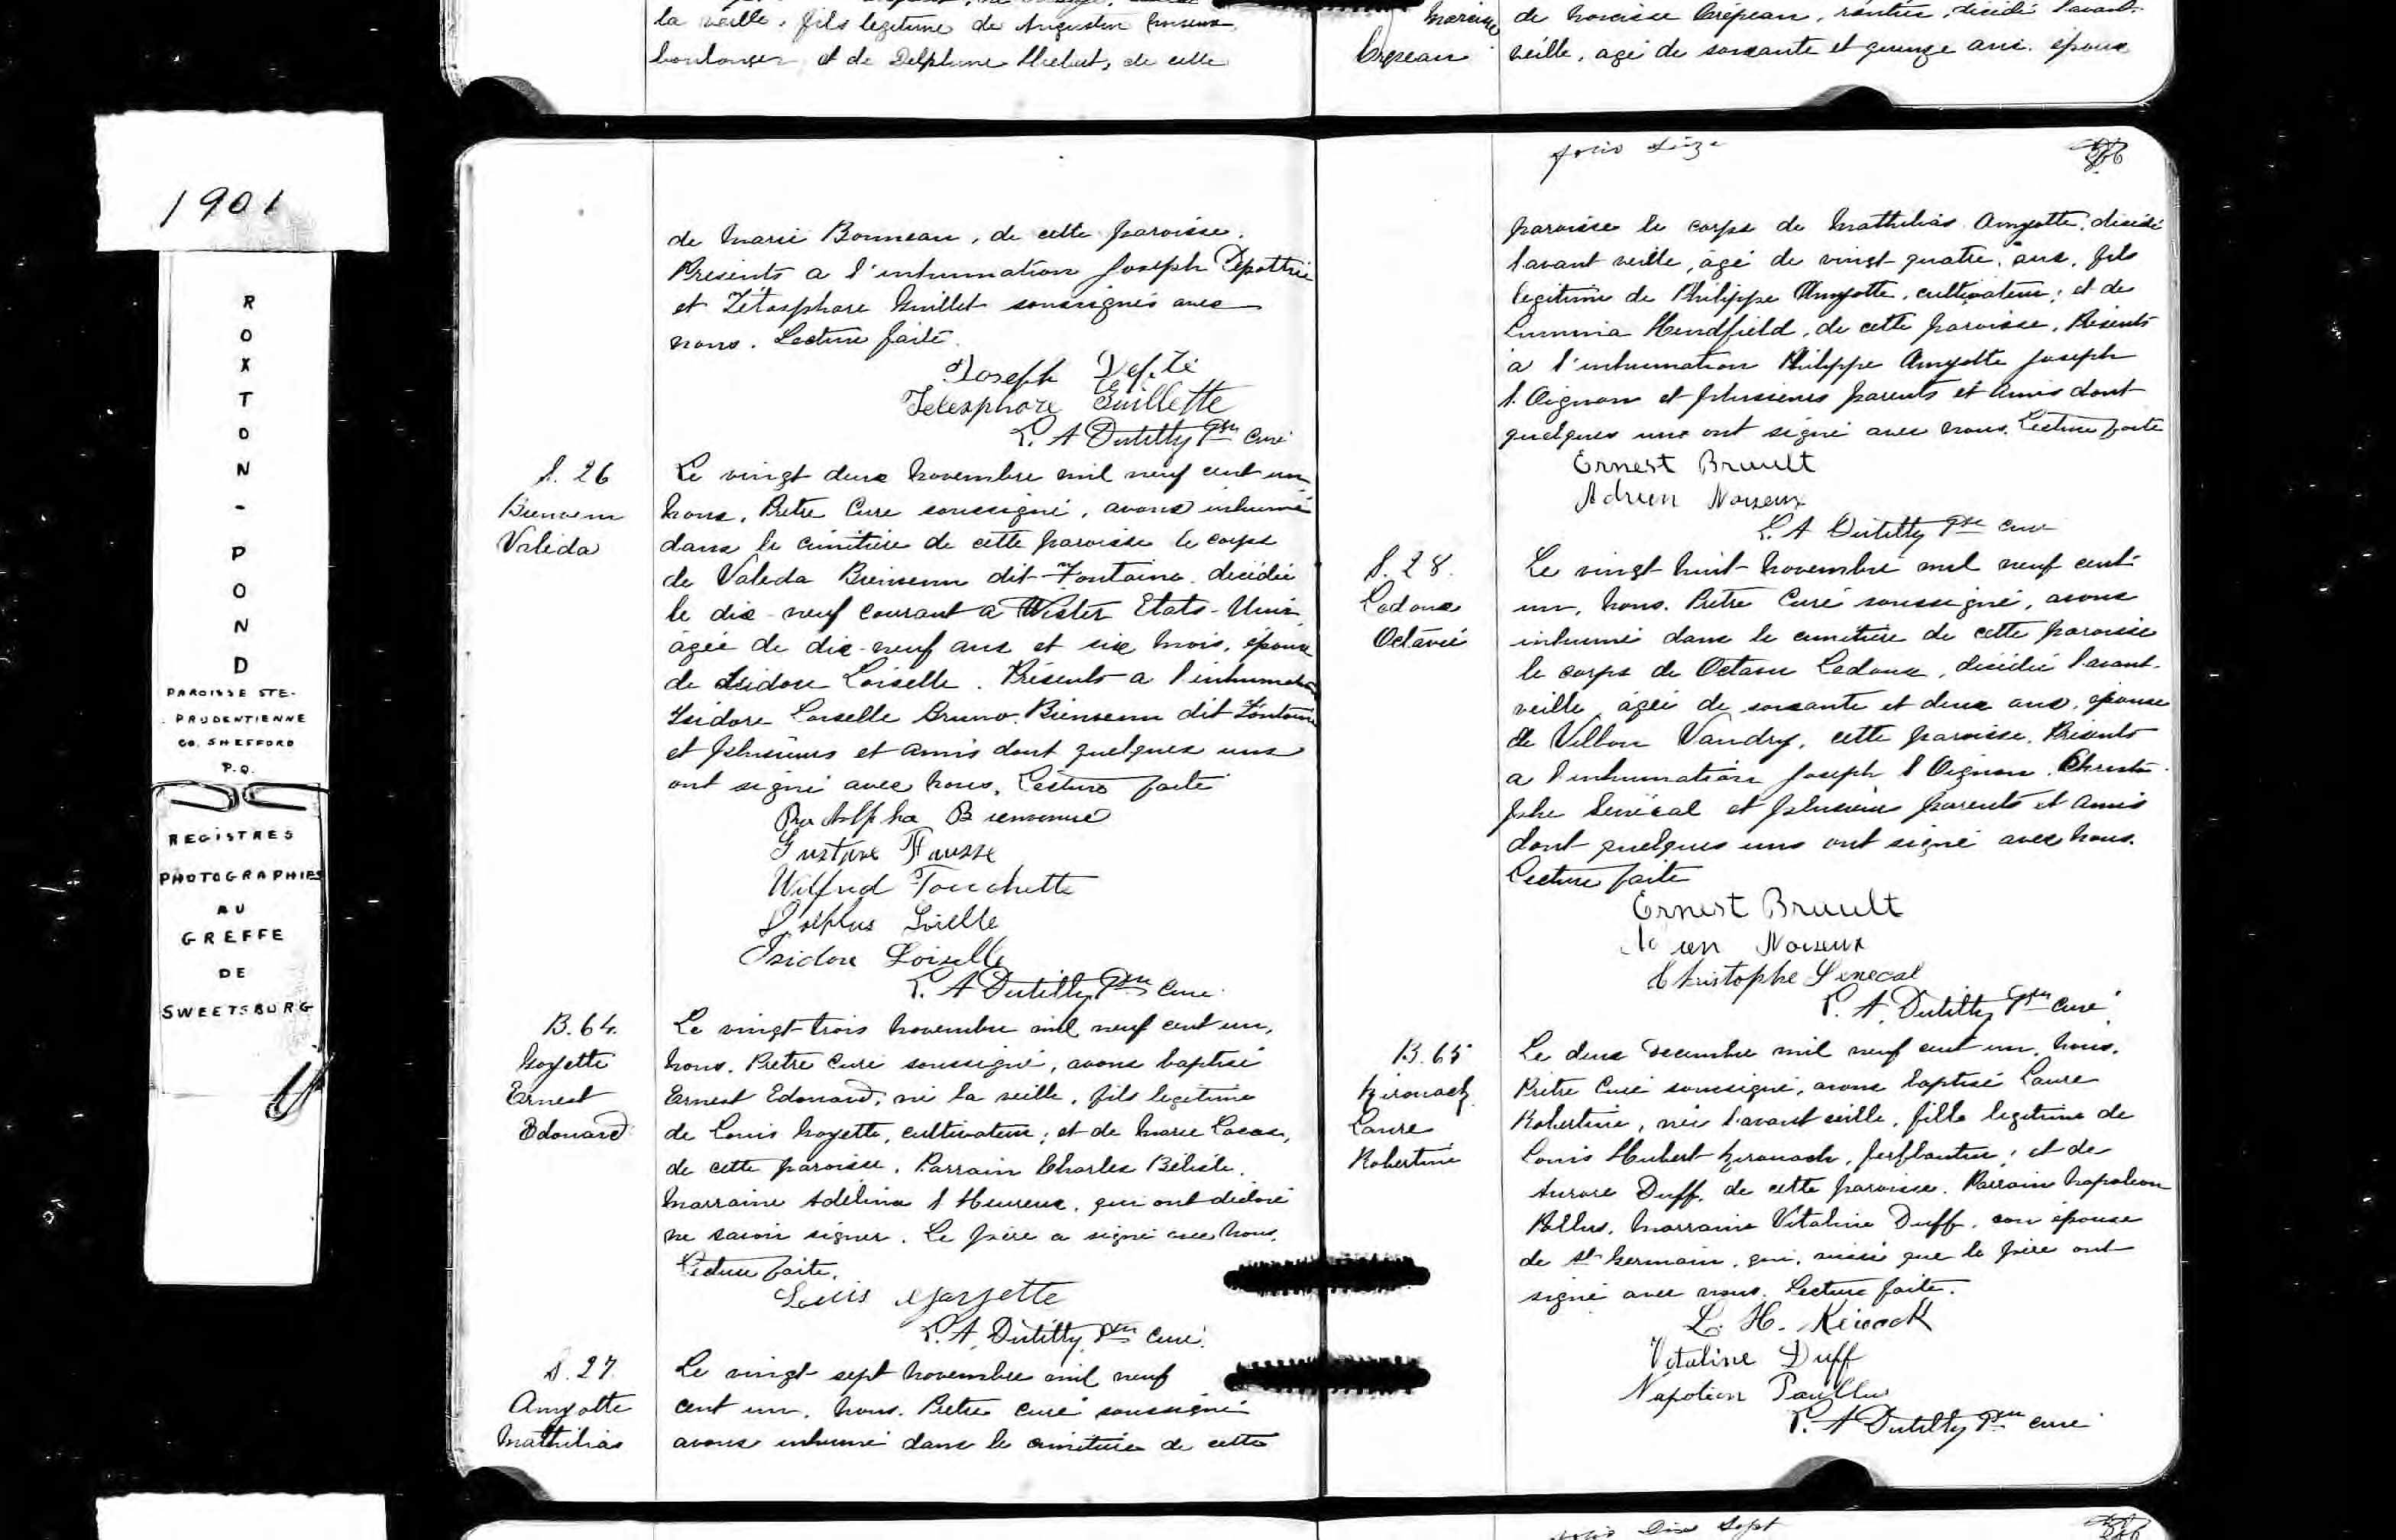 la veille, fils legitime de Augustin
boulanger et de Delphine Hebert, de cette
Narcisse
Crepeau
de Narcisse Crépeau, rentier, décédé l'avant-
veille, agé de soixante et quinze ans. époux
1901
ROXTON-POND
PAROISSE STE-
PRUDENTIENNE
CO. SHEFFORD
P.Q.
REGISTRES
PHOTOGRAPHIES
AU
GREFFE
DE
SWEETSBURG
de Marie Bonneau, de cette paroisse.
Présents a l'inhumation Joseph
et Télesphore Guillet soussignés avec
nous. Lecture faite.
Joseph
Telesphore Guillette
L. A Dutilly Ptre Curé
S. 26
Bienvenu
Valeda
Le vingt deux Novembre mil neuf cent un
Nous, Prêtre Curé soussigné, avons inhumé
dans le cimitière de cette paroisse le corps
de Valeda Bienvenu dit Fontaine décédée
le dix-neuf courant a Wister Etats-Unis
agée de dix-neuf ans et six mois, épouse
de Isidore Loiselle. Présents a l'inhumation
Isidore Loiselle Bruno Bienvenu dit Fontaine
et plusieurs et amis dont quelques uns
ont signé avec nous. Lecture faite
Bienvenue
Gustave Fausse
Wilfrid Touchette
Loiselle
Isidore Loiselle
L. A Dutilly Ptre Curé
B. 64.
Goyette
Ernest
Edouard
Le vingt-trois Novembre mil neuf cent un,
Nous, Prêtre Curé soussigné, avons baptisé
Ernest Edouard, né la veille, fils legitime
de Louis Goyette, cultivateur; et de Marie
de cette paroisse. Parrain Charles Bélisle.
Marraine Adélina l'Heureux, qui ont déclaré
ne savoir signer. Le père a signé avec nous.
Lecture faite.
Louis Goyette
L. A. Dutilly Ptre Curé.
S. 27
Amyotte
Mathilias
Le vingt-sept Novembre mil neuf
cent un, Nous, Prêtre Curé soussigné
avons inhumé dans le cimitière de cette
folio Seize
paroisse le corps de Mathilias Amyotte, décédé
l'avant veille, agé de vingt-quatre ans, fils
legitime de Philippe Amyotte, cultivateur; et de
Hendfield, de cette paroisse. Présents
a l'inhumation Philippe Amyotte Joseph
l'Oignon et plusieurs parents et Amis dont
quelques uns ont signé avec nous. Lecture faite
Ernest Brault
Adrien Noiseux
L. A Dutilly Ptre Curé
S. 28.
Ledoux
Octavie
Le vingt huit Novembre mil neuf cent
un, Nous, Prêtre Curé soussigné, avons
inhumé dans le cimitière de cette paroisse
le corps de Octavie Ledoux, décédée l'avant-
veille, agée de soixante et deux ans, épouse
de Villon Vandry, cette paroisse. Présents
a l'inhumation Joseph l'Oignon. Christo-
phe Senécal et plusieurs parents et Amis
dont quelques uns ont signé avec nous.
Lecture faite
Ernest Brault
Noiseux
Christophe Senecal
L. A. Dutilly Ptre Curé
B. 65
Kirouack
Laure
Robertine
Le deux Decembre mil neuf cent un, Nous,
Prêtre Curé soussigné, avons baptisé Laure
Robertine, née l'avant veille, fille legitime de
Louis Hubert Kirouack, ferblantier; et de
Aurore Duff, de cette paroisse. Parrain Napoleon
Pollus, Marraine Vitaline Duff, son épouse
de St Germain, qui, ainsi que le père ont
signé avec nous. Lecture faite.
L. H. Kirouack
Vitaline Duff
Napoléon Paullus
L. A Dutilly Ptre Curé
folio Dix Sept